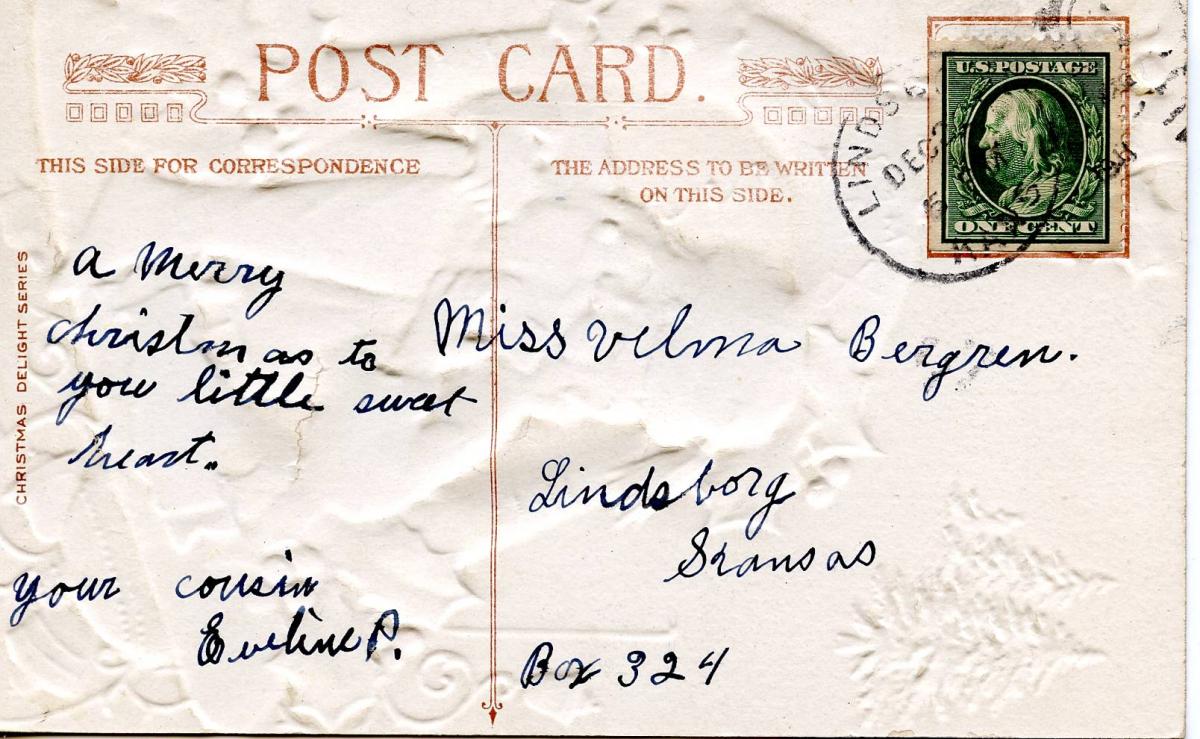 POST CARD.
THIS SIDE FOR CORRESPONDENCE
THE ADDRESS TO BE WRITTEN
ON THIS SIDE.
U.S. POSTAGE
ONE CENT
DEC
CHRISTMAS DELIGHT SERIES
a Merry
christmas to
you little sweet
heart.
your cousin
Eveline P.
Miss Velma Bergren.
Lindsborg
Kansas
Box 324